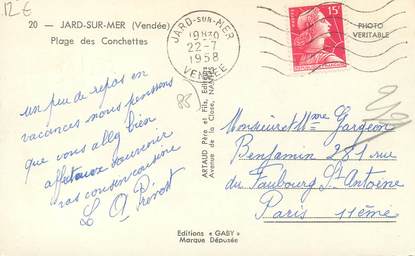 12 €
20 — JARD-SUR-MER (Vendée)
Plage des Conchettes
JARD-SUR-MER
19H30
22-7
1958
VENDÉE
15F
PHOTO
VERITABLE
un peu de repos en
vacances nous pensons
que vous allez bien
affectueux souvenir
vos cousin cousine
L A Prevost
85
ARTAUD Père et Fils, Éditeurs
Avenue de la Close, NANTES
Monsieur et Mme Gargeon
Benjamin 281 rue
du Faubourg St Antoine
Paris 11ème
Editions « GABY »
Marque Déposée